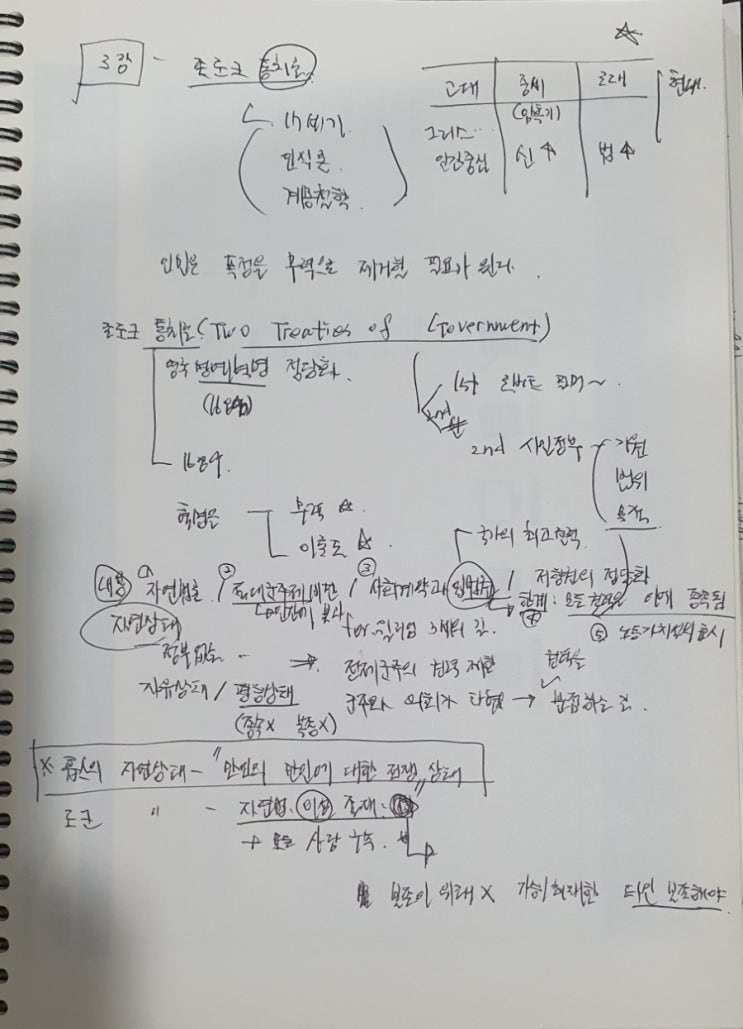 3강 - 존로크 통치론
고대 | 중세 | 근대 | 현대.
(암흑기)
그리스…
인간중심 | 신↑ | 법↑
나비기
인식론
계몽철학
인민은 폭정을 무력으로 제거할 필요가 있다.
존로크 통치론 (Two Treaties of Government)
영국 명예혁명 정당화.
1st 로버트 필머~.
2nd 시민정부 - 기원
범위
목적
1689.
혁명은 - 무력 ☆.
이론도 ☆
국가의 최고권력
내용 ① 자연법론 / ② 절대군주제 비판 / ③ 사회계약과 입법권 / 저항권의 정당화
④ 한계: 모든 권력은 종속됨
for 윌리엄 3세의 길.
⑤ 노동가치설의 표시
자연상태
정부없음..
⇒ 전제군주의 권력 제한
권력을
자유상태 / 평등상태
군주와 의회가 타협 → 분점하는 것.
(종속X 복종X)
※ 홉스의 자연상태 - "만인의 만인에 대한 전쟁" 상태
로크 〃 - 자연법. 이성 존재.
→ 모든 사람 구속.
보존이 위태 X 가능 최대한 타인 보존해야